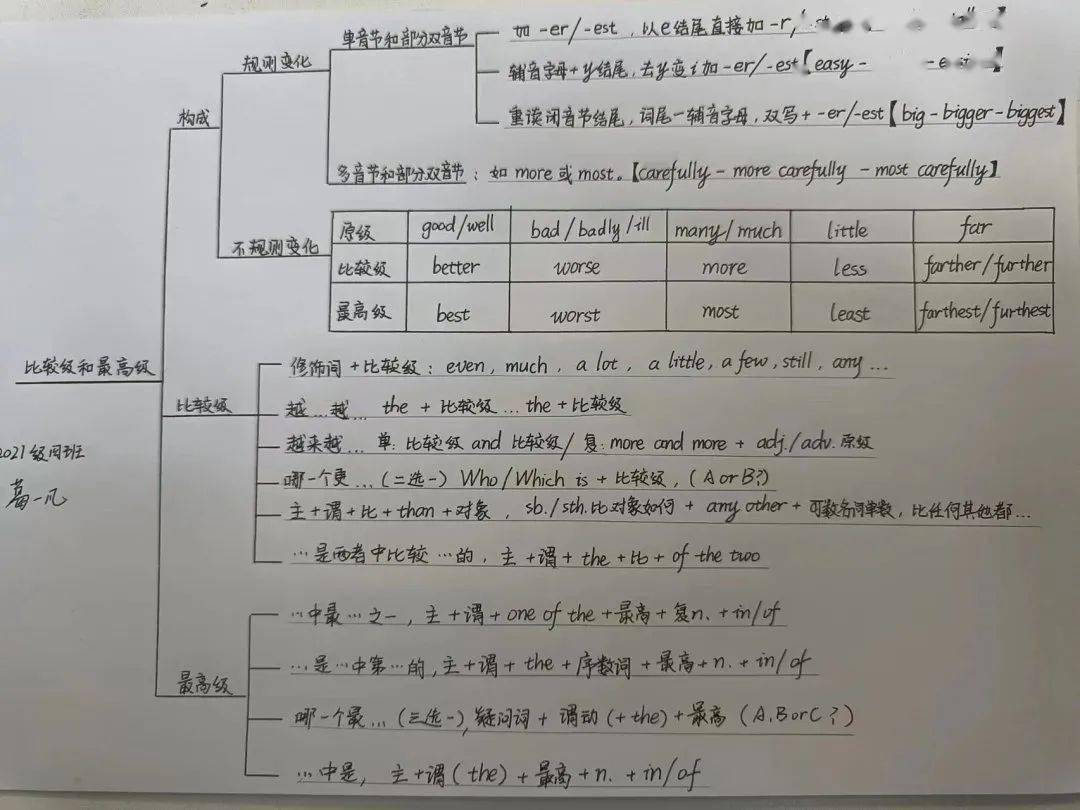 单音节和部分双音节
加 -er/-est，以e结尾直接加 -r,
规则变化
辅音字母+y结尾，去y变i加-er/-est【easy-
构成
重读闭音节结尾，词尾一辅音字母，双写+-er/-est【big-bigger-biggest】
多音节和部分双音节：如 more 或 most。【carefully - more carefully - most carefully】
不规则变化
原级 good/well bad/badly/ill many/much little far
比较级 better worse more less farther/further
最高级 best worst most least farthest/furthest
比较级和最高级
修饰词+比较级：even, much, a lot, a little, a few, still, any...
比较级
越...越... the + 比较级...the+比较级
越来越... 单: 比较级 and 比较级/ 复: more and more + adj./adv. 原级
2021级 班
哪一个更...(二选一) Who/Which is + 比较级, (A or B?)
葛一凡
主+谓+比+than+对象, sb./sth.比对象如何 + any other + 可数名词单数，比任何其他都...
...是两者中比较...的, 主+谓+the+比+of the two
...中最...之一, 主+谓+one of the+最高+复n.+in/of
...是...中第...的, 主+谓+the+序数词+最高+n.+in/of
最高级
哪一个最...(三选一), 疑问词+谓动(+the)+最高 (A, B or C?)
...中是, 主+谓(the)+最高+n.+in/of